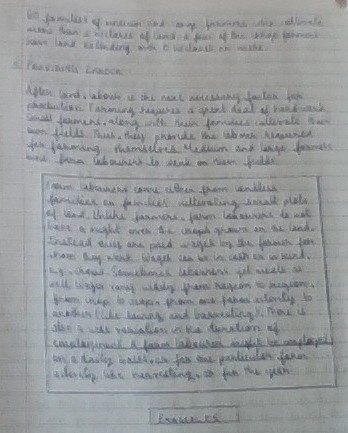 60 families of medium and large farmers who cultivate
more than 2 hectares of land. A few of the large farmers
have land extending over 10 hectares or more.
After land, labour is the next necessary factor for
production. Farming requires a great deal of hard work.
Small farmers, along with their families cultivate their
own fields. Thus, they provide the labour required
for farming themselves. Medium and large farmers
farm labourers to work on their fields.
Farm labourers come either from landless
families or families cultivating small plots
of land. Unlike farmers, farm labourers do not
have a right over the crops grown on the land.
Instead they are paid wages by the farmer for
whom they work. Wages can be in cash or in kind,
e.g. crops. Sometimes labourers get meals as
well. Wages vary widely from region to region,
from crop to crop, from one farm activity to
another (like sowing and harvesting). There is
also a wide variation in the duration of
employment. A farm labourer might be employed
on a daily basis, or for one particular farm
activity like harvesting, or for the year